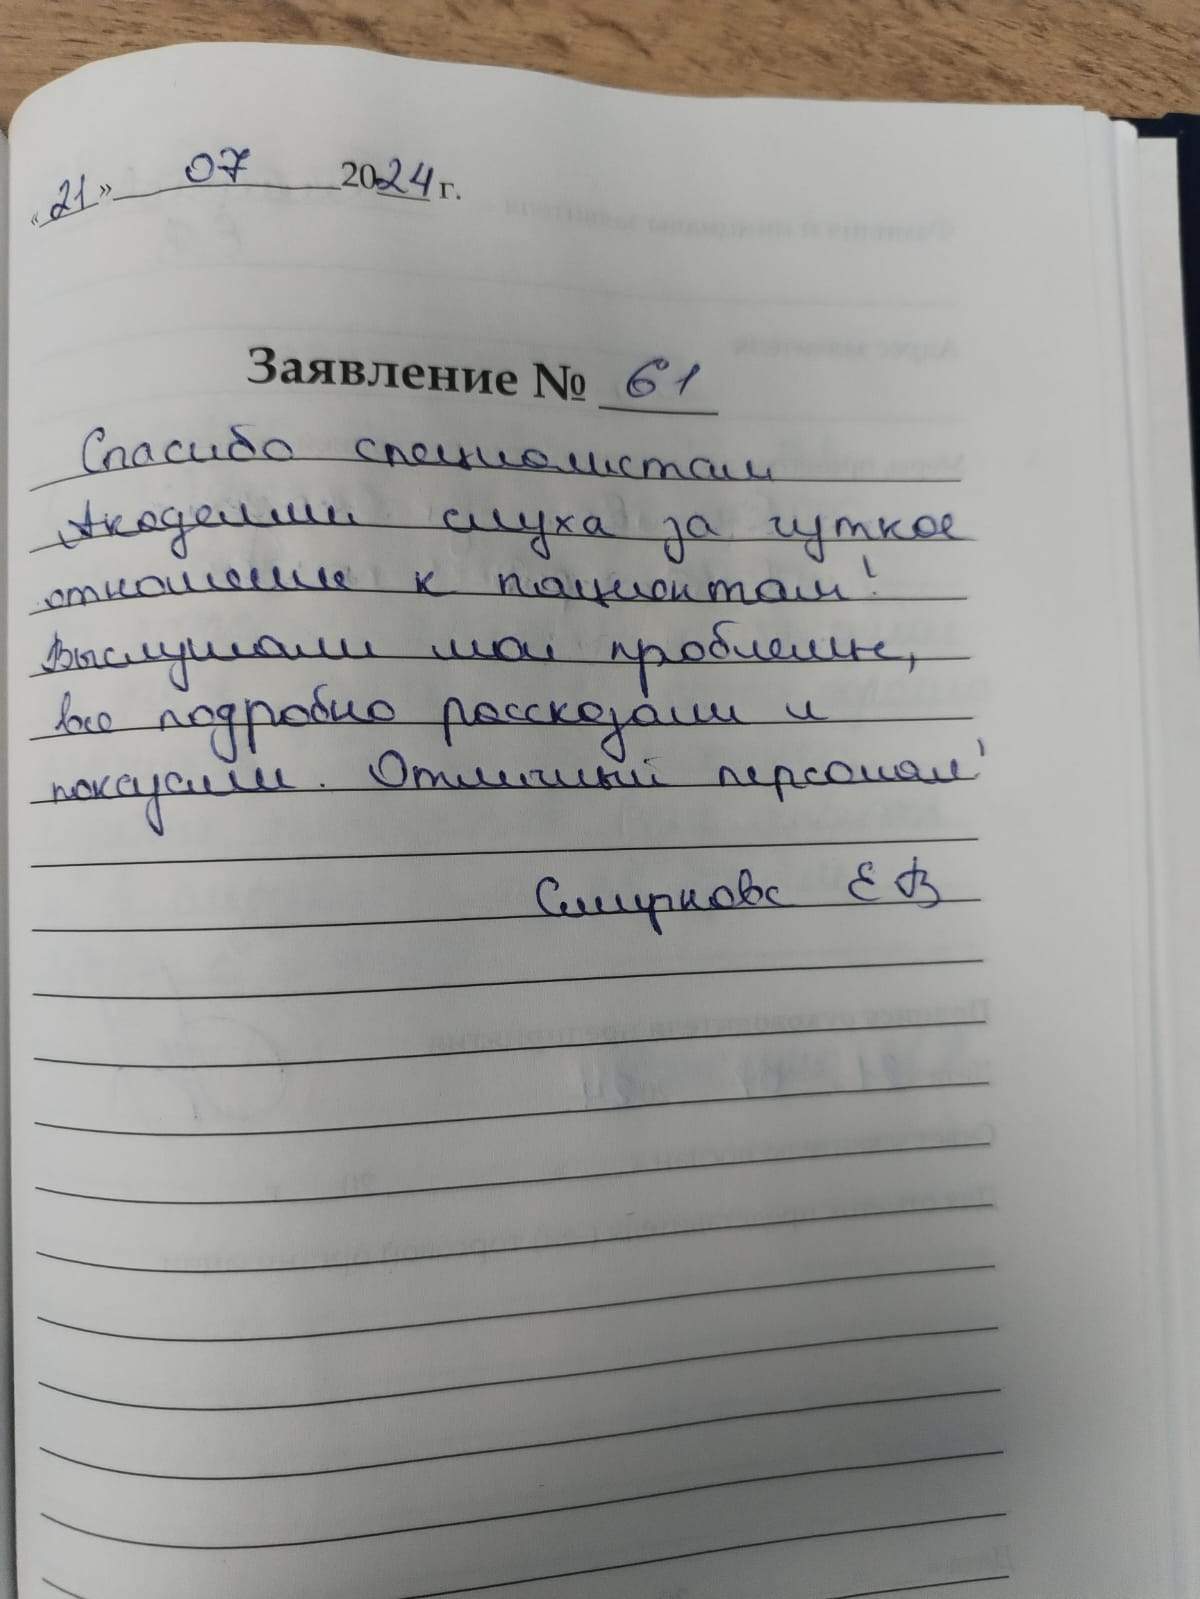 «21» 07 2024 г.
Заявление № 61
Спасибо специалистам
Академии слуха за чуткое
отношение к пациентам!
Выслушали мои проблемы,
все подробно рассказали и
показали. Отличный персонал!
Смирнова Е В